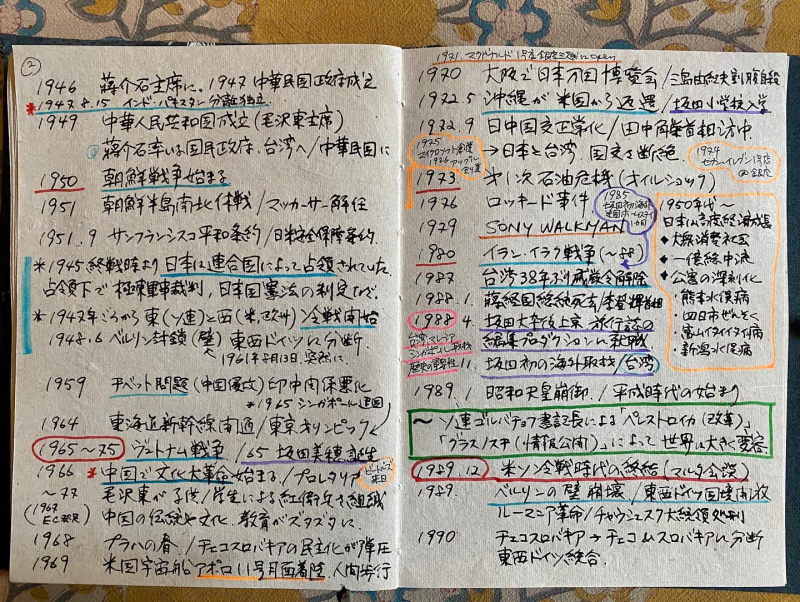 ②
1946 蒋介石主席に。1947 中華民国政府成立
*1947.8.15 インド・パキスタン分離独立
1949 中華人民共和国成立(毛沢東主席)
蒋介石率いる国民政府、台湾へ/中華民国に
1950 朝鮮戦争始まる
1951 朝鮮半島南北休戦/マッカーサー解任
1951.9 サンフランシスコ平和条約/日米安全保障条約.
*1945終戦時より日本は連合国によって占領されていた
占領下で極東軍事裁判, 日本国憲法の制定など.
*1947年ごろから東(ソ連)と西(米,欧州)冷戦開始
1948.6 ベルリン封鎖(壁)東西ドイツに分断
1961年8月13日 突然に.
1959 チベット問題(中国優文)印中関係悪化
*1965 シンガポール建国
1964 東海道新幹線開通/東京オリンピック
1965〜75 ベトナム戦争/65 坂田美穂誕生
1966 *中国で文化大革命始まる/プロレタリア
ビートルズ来日
〜77 毛沢東が子供/学生による紅衛兵を組織
(1967 EC発足) 中国の伝統や文化、教育がズタズタに.
1968 プラハの春./チェコスロバキアの民主化が弾圧
1969 米国宇宙船アポロ11号月面着陸.人間歩行
1971. マクドナルド1号店 銀座三越にopen
1970 大阪で日本万国博覧会/三島由紀夫割腹自殺
1972.5 沖縄が米国から返還/坂田小学校入学
1972.9 日中国交正常化/田中角栄首相訪中
→日本と台湾.国交を断絶.
1975 マイクロソフト創業
1976 アップル創業
1974 セブンイレブン1号店
1973 第1次石油危機(オイルショック)
1976 ロッキード事件
1985 坂田初の海外 米国ホームステイ1か月
1979 SONY WALKMAN
1980 イラン・イラク戦争(〜88)
1987 台湾38年ぶり戒厳令解除
1988.1. 蒋経国総統死去/李登輝首相
1988.4. 坂田大卒後上京 旅行誌の
編集プロダクションに就職
台湾,マレーシア シンガポール取材 歴史の重要性
11. 坂田初の海外取材/台湾
1989.1 昭和天皇崩御./平成時代の始まり
1950年代〜
日本は高度経済成長
◆大量消費社会
◆一億総中流
◆公害の深刻化
・熊本水俣病
・四日市ぜんそく
・富山イタイイタイ病
・新潟水俣病
〜ソ連ゴルバチョフ書記長による「ペレストロイカ(改革)」
「グラスノスチ(情報公開)」によって世界は大きく変容.
1989.12 米ソ冷戦時代の終結(マルタ会談)
1989. ベルリンの壁崩壊/東西ドイツ国境開放
ルーマニア革命/チャウシェスク大統領処刑
1990 チェコスロバキア→チェコとスロバキアに分断
東西ドイツ統合.